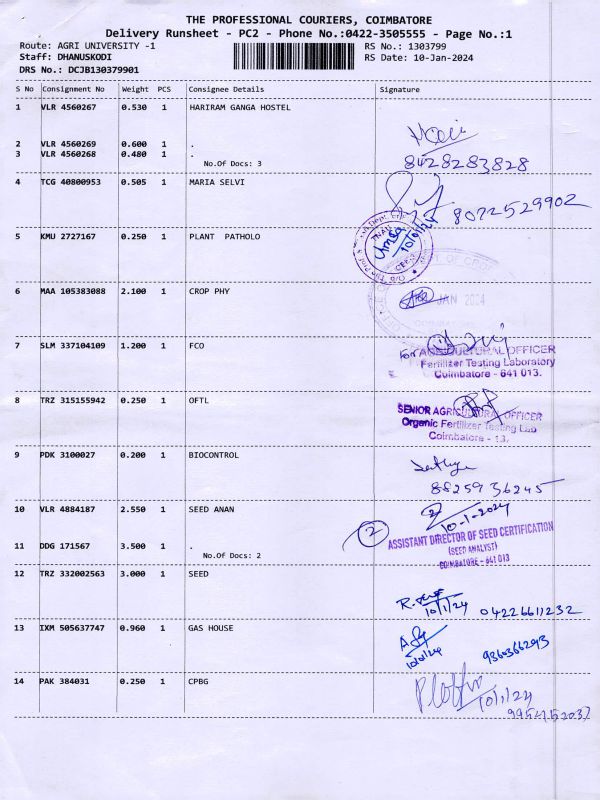 THE PROFESSIONAL COURIERS, COIMBATORE
Delivery Runsheet - PC2 - Phone No.:0422-3505555 - Page No.:1
Route: AGRI UNIVERSITY -1 RS No.: 1303799
Staff: DHANUSKODI RS Date: 10-Jan-2024
DRS No.: DCJB130379901
S No Consignment No Weight PCS Consignee Details Signature
1 VLR 4560267 0.530 1 HARIRAM GANGA HOSTEL
2 VLR 4560269 0.600 1 .
3 VLR 4560268 0.480 1 .
No.Of Docs: 3
8428283828
4 TCG 40800953 0.505 1 MARIA SELVI
8072529902
5 KMU 2727167 0.250 1 PLANT PATHOLO
10/01/24
6 MAA 105383088 2.100 1 CROP PHY
JAN 2024
7 SLM 337104109 1.200 1 FCO
for
AGRICULTURAL OFFICER
Fertilizer Testing Laboratory
Coimbatore - 641 013.
8 TRZ 315155942 0.250 1 OFTL
SENIOR AGRICULTURAL OFFICER
Organic Fertilizer Testing Lab
Coimbatore - 13.
9 PDK 3100027 0.200 1 BIOCONTROL
8825936245
10 VLR 4884187 2.550 1 SEED ANAN
10-1-2024
2
ASSISTANT DIRECTOR OF SEED CERTIFICATION
(SEED ANALYST)
COIMBATORE - 641 013
11 DDG 171567 3.500 1 .
No.Of Docs: 2
12 TRZ 332002563 3.000 1 SEED
10/1/24 04226611232
13 IXM 505637747 0.960 1 GAS HOUSE
10/01/24
14 PAK 384031 0.250 1 CPBG
10/1/24